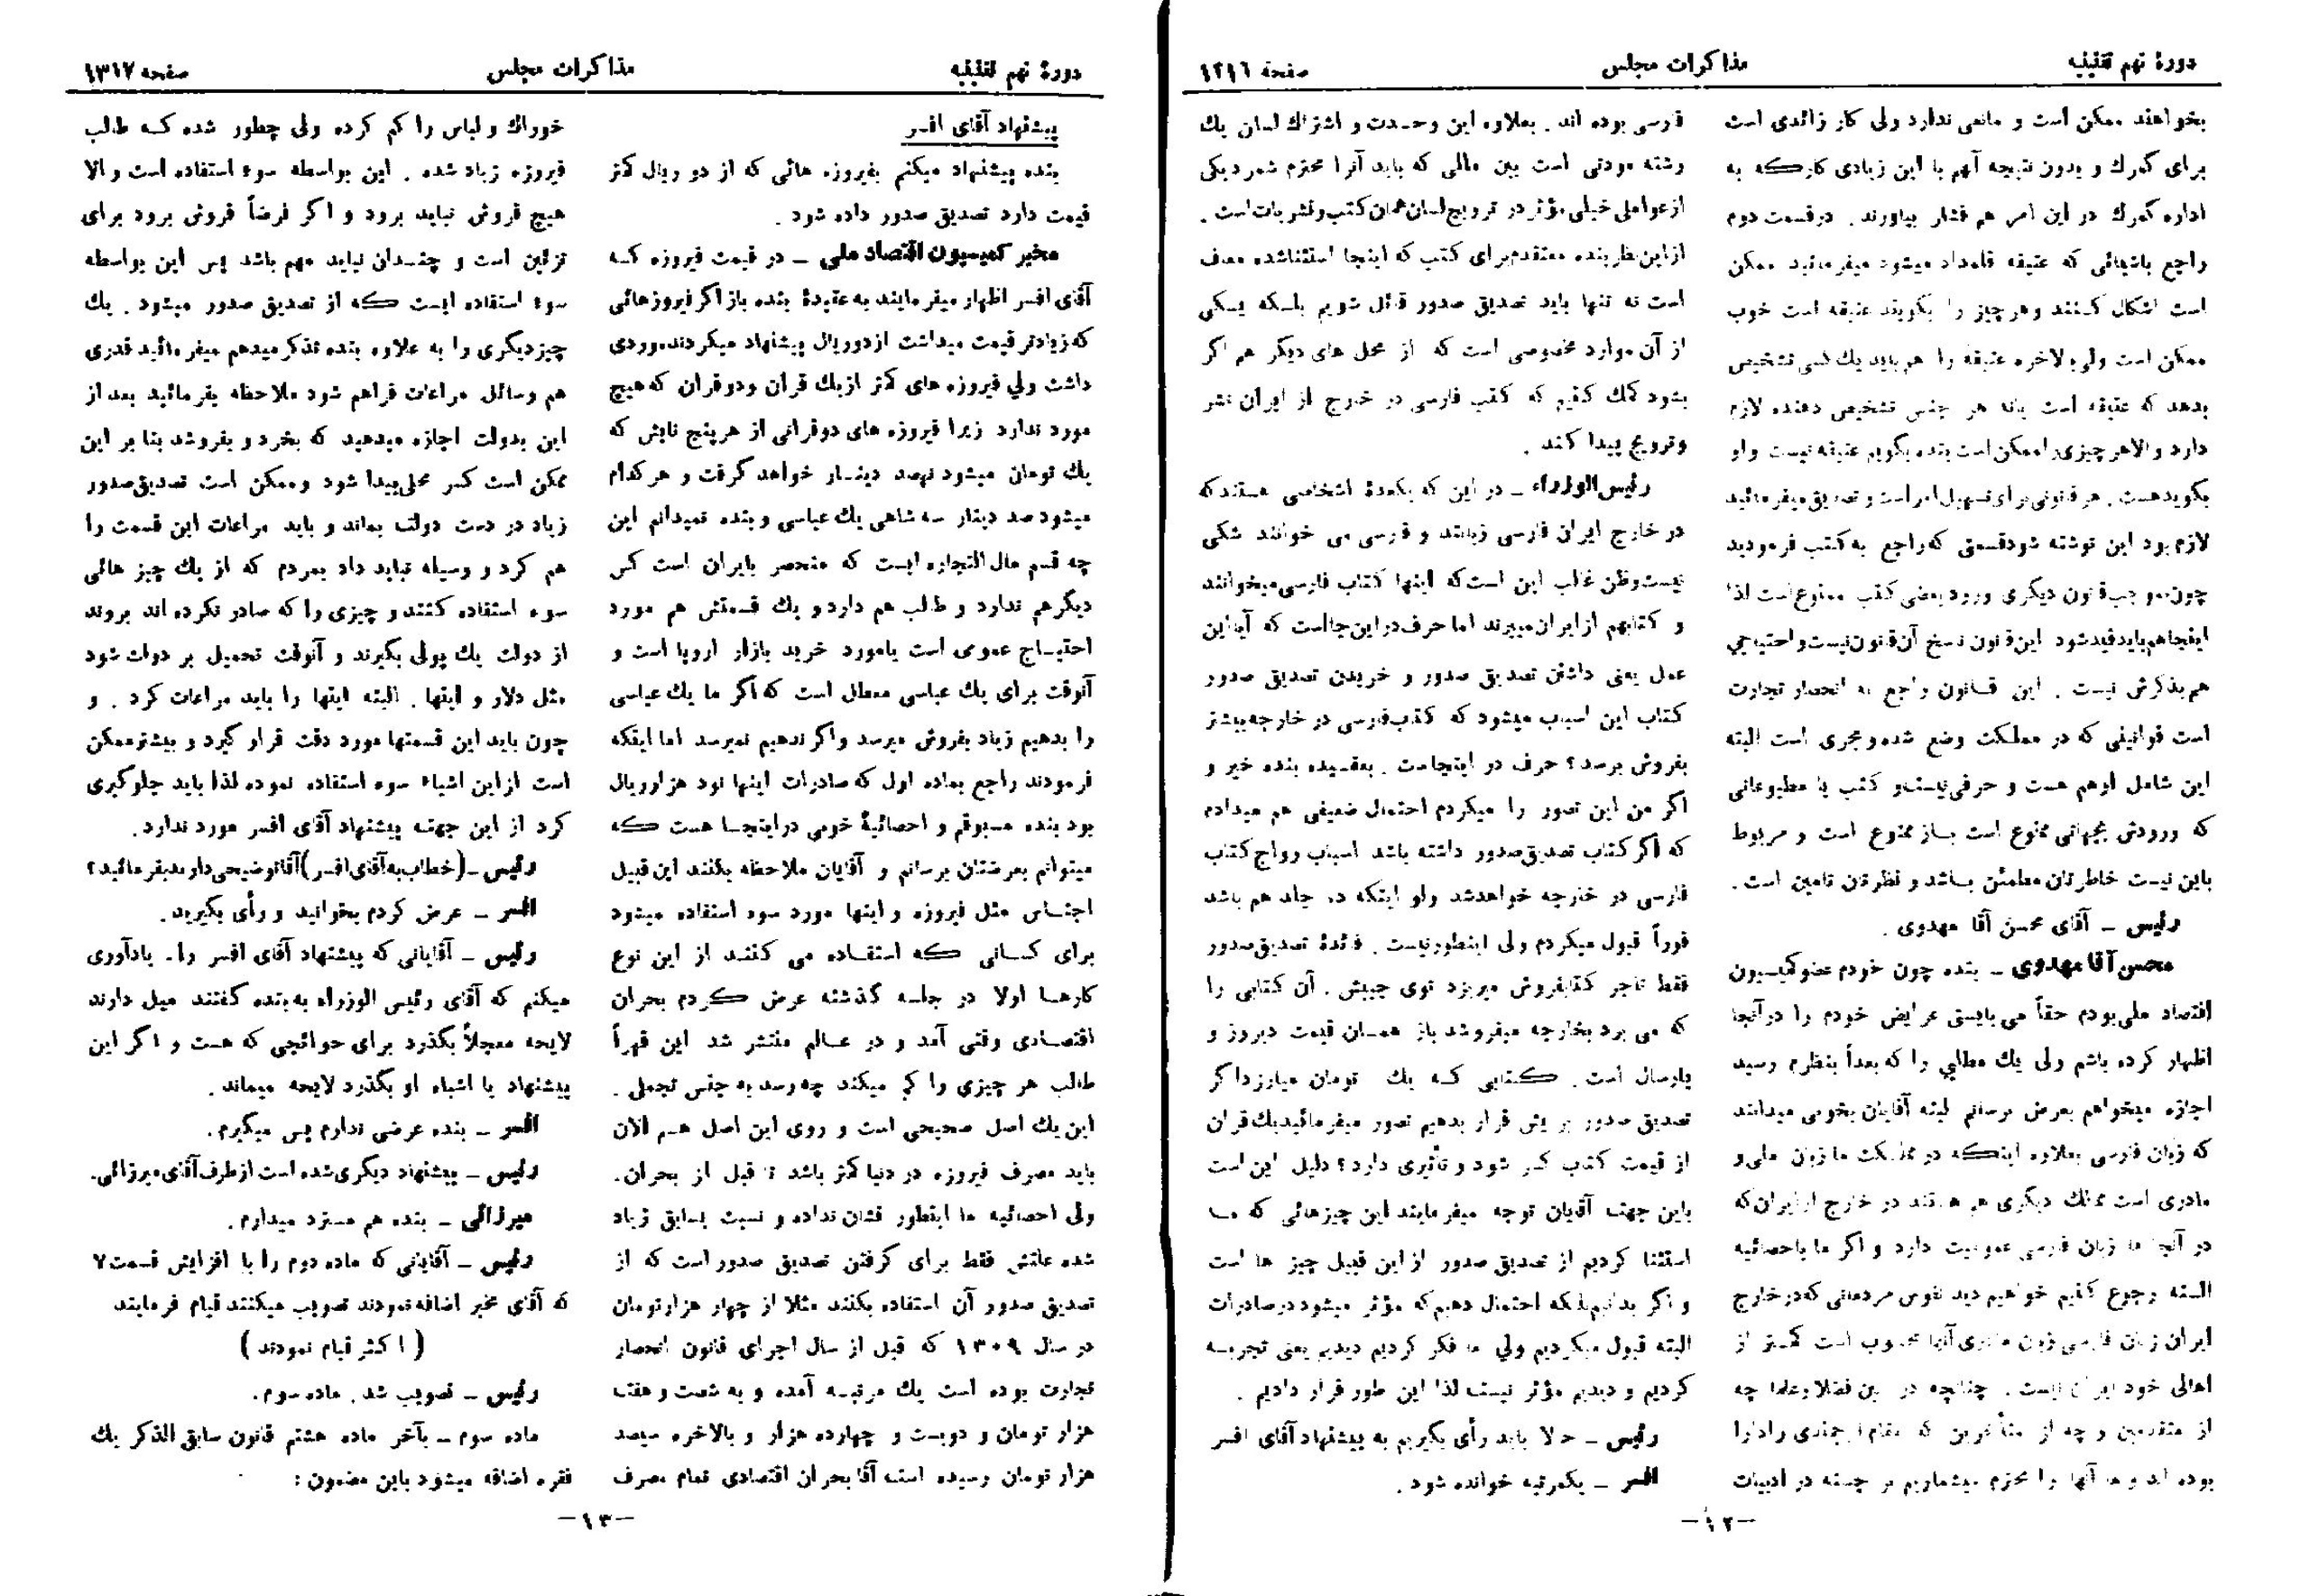 دورهٔ نهم تقنینیه
مذاکرات مجلس
صفحه ۱۳۱۶
بخواهند ممکن است و مانعی ندارد ولی کار زائدی است
برای گمرك و بدون نتیجه آنهم با این زیادی کار که به
اداره گمرك در این امر هم فشار بیاورند . در قسمت دوم
راجع باشیائی که عتیقه قلمداد میشود میفرمائید ممکن
است اشکال کنند و هر چیز را بگویند عتیقه است خوب
ممکن است ولی بالاخره عتیقه را هم باید یك کسی تشخیص
بدهد که عتیقه است یا نه هر جنس تشخیص دهنده لازم
دارد والا هر چیزی را ممکن است بنده بگویم عتیقه نیست و او
بگوید هست . هر قانونی برای تسهیل امر است و تصدیق میفرمائید
لازم بود این نوشته شود قسمتی که راجع به کتب فرمودید
چون بموجب قانون دیگری ورود بعضی کتب ممنوع است لذا
اینجا هم باید قید شود این قانون نسخ آن قانون نیست و احتیاجی
هم بذکرش نیست . این قانون راجع به انحصار تجارت
است قوانینی که در مملکت وضع شده و مجری است البته
این شامل او هم هست و حرفی نیست و کتب یا مطبوعاتی
که ورودش بجهاتی ممنوع است باز ممنوع است و مربوط
باین نیست خاطرتان مطمئن باشد و نظرتان تامین است .
رئیس ـ آقای محسن آقا مهدوی .
محسن آقا مهدوی ـ بنده چون خودم عضو کمیسیون
اقتصاد ملی بودم حقاً می بایستی عرایض خودم را در آنجا
اظهار کرده باشم ولی یك مطالبی را که بعداً بنظرم رسید
اجازه میخواهم بعرض برسانم البته آقایان بخوبی میدانند
که زبان فارسی بعلاوه اینکه در مملکت ما زبان ملی و
مادری است ممالك دیگری هم هستند در خارج از ایران که
در آنجا ها زبان فارسی عمومیت دارد و اگر ما باحصائیه
السنه رجوع کنیم خواهیم دید نفوس مردمانی که در خارج
ایران زبان فارسی زبان مادری آنها محسوب است کمتر از
اهالی خود ایران نیست . چنانچه در بین فضلا و علما چه
از متقدمین و چه از متأخرین که مقام ارجمندی را دارا
بوده اند و ما آنها را محترم میشماریم بر جسته در ادبیات
فارسی بوده اند . بعلاوه این وحدت و اشتراك لسان یك
رشته مودتی است بین مالی که باید آنرا محترم شمرد یکی
از عواملی خیلی مؤثر در ترویج لسان همان کتب و نشریات است .
از این نظر بنده معتقدم برای کتب که اینجا استثنا شده معاف
است نه تنها باید تصدیق صدور قائل شویم بلکه یکی
از آن موارد مخصوصی است که از محل های دیگر هم اگر
بشود کمك کنیم که کتب فارسی در خارج از ایران نشر
و ترویج پیدا کند .
رئیس الوزراء ـ در این که یکعدهٔ اشخاصی هستند که
در خارج ایران فارسی زبانند و فارسی می خوانند شکی
نیست و ظن غالب این است که اینها کتاب فارسی میخوانند
و کتابهم از ایران میبرند اما حرف در این جا است که آیا این
عمل یعنی داشتن تصدیق صدور و خریدن تصدیق صدور
کتاب این اسباب میشود که کتب فارسی در خارجه بیشتر
بفروش برسد؟ حرف در اینجاست . بعقیده بنده خیر و
اگر من این تصور را میکردم احتمال ضعیفی هم میدادم
که اگر کتاب تصدیق صدور داشته باشد اسباب رواج کتاب
فارسی در خارجه خواهد شد ولو اینکه ده جلد هم باشد
فوراً قبول میکردم ولی اینطور نیست . فائدهٔ تصدیق صدور
فقط تاجر کتابفروش میریزد توی جیبش . آن کتابی را
که می برد بخارجه میفروشد باز همان قیمت دیروز و
پارسال است . کتابی که یك تومان میارزد اگر
تصدیق صدور برایش قرار بدهیم تصور میفرمائید یك قران
از قیمت کتاب کسر شود و تأثیری دارد؟ دلیل این است
باین جهت آقایان توجه میفرمایند این چیزهائی که ما
استثنا کردیم از تصدیق صدور از این قبیل چیز ها است
و اگر بدانیم بلکه احتمال دهیم که مؤثر میشود در صادرات
البته قبول میکردیم ولی ما فکر کردیم دیدیم یعنی تجربه
کردیم و دیدیم مؤثر نیست لذا این طور قرار دادیم .
رئیس ـ حالا باید رأی بگیریم به پیشنهاد آقای افسر
افسر ـ یکمرتبه خوانده شود .
ـ ۱۲ ـ
دورهٔ نهم تقنینیه
مذاکرات مجلس
صفحه ۱۳۱۷
پیشنهاد آقای افسر
بنده پیشنهاد میکنم بفیروزه هائی که از دو ریال کمتر
قیمت دارد تصدیق صدور داده شود .
مخبر کمیسیون اقتصاد ملی ـ در قیمت فیروزه که
آقای افسر اظهار میفرمایند به عقیدهٔ بنده باز اگر فیروزهائی
که زیادتر قیمت میداشت از دوریال پیشنهاد میکردند موردی
داشت ولی فیروزه های کمتر از یك قران و دو قران که هیچ
مورد ندارد زیرا فیروزه های دوقرانی از هر پنج تایش که
یك تومان میشود نهصد دینار خواهد گرفت و هر کدام
میشود صد دینار سه شاهی یك عباسی و بنده نمیدانم این
چه قسم مال التجاره ایست که منحصر بایران است کس
دیگر هم ندارد و طالب هم دارد و یك قسمتش هم مورد
احتیاج عمومی است یا مورد خرید بازار اروپا است و
آنوقت برای یك عباسی معطل است که اگر ما یك عباسی
را بدهیم زیاد بفروش میرسد و اگر ندهیم نمیرسد اما اینکه
فرمودند راجع بماده اول که صادرات اینها نود هزار ریال
بود بنده مسبوقم و احصائیهٔ خوبی در اینجا هست که
میتوانم بعرضتان برسانم و آقایان ملاحظه بکنند این قبیل
اجناس مثل فیروزه و اینها مورد سوء استفاده میشود
برای کسانی که استفاده می کنند از این نوع
کارها اولا در جلسه گذشته عرض کردم بحران
اقتصادی وقتی آمد و در عالم منتشر شد این قهراً
طالب هر چیزی را کم میکند چه رسد به جنس تجملی .
این یك اصل صحیحی است و روی این اصل هم الان
باید مصرف فیروزه در دنیا کمتر باشد تا قبل از بحران .
ولی احصائیه ما اینطور نشان نداده و نسبت بسابق زیاد
شده علتش فقط برای گرفتن تصدیق صدور است که از
تصدیق صدور آن استفاده بکنند مثلا از چهار هزار تومان
در سال ۱۳۰۹ که قبل از سال اجرای قانون انحصار
تجارت بوده است یك مرتبه آمده و به شصت و هفت
هزار تومان و دویست و چهارده هزار و بالاخره سیصد
هزار تومان رسیده است آقا بحران اقتصادی تمام مصرف
خوراك و لباس را کم کرده ولی چطور شده که طالب
فیروزه زیاد شده . این بواسطه سوء استفاده است والا
هیچ فروش نباید برود و اگر فرضاً فروش برود برای
تزئین است و چندان نباید مهم باشد پس این بواسطه
سوء استفاده ایست که از تصدیق صدور میشود . یك
چیز دیگری را به علاوه بنده تذکر میدهم میفرمائید قدری
هم وسائل مراعات فراهم شود ملاحظه بفرمائید بعد از
این بدولت اجازه میدهید که بخرد و بفروشد بنا بر این
ممکن است کسر محلی پیدا شود و ممکن است تصدیق صدور
زیاد در دست دولت بماند و باید مراعات این قسمت را
هم کرد و وسیله نباید داد بمردم که از یك چیز هائی
سوء استفاده کنند و چیزی را که صادر نکرده اند بروند
از دولت یك پولی بگیرند و آنوقت تحمیل بر دولت شود
مثل دلار و اینها . البته اینها را باید مراعات کرد . و
چون باید این قسمتها مورد دقت قرار گیرد و بیشتر ممکن
است از این اشیاء سوء استفاده نموده لذا باید جلوگیری
کرد از این جهت پیشنهاد آقای افسر مورد ندارد.
رئیس ـ (خطاب به آقای افسر) آقا توضیحی دارید بفرمائید؟
افسر ـ عرض کردم بخوانید و رأی بگیرید.
رئیس ـ آقایانی که پیشنهاد آقای افسر را ـ یادآوری
میکنم که آقای رئیس الوزراء به بنده گفتند میل دارند
لایحه معجلاً بگذرد برای حوائجی که هست و اگر این
پیشنهاد یا اشباه او بگذرد لایحه میماند .
افسر ـ بنده عرضی ندارم پس میگیرم.
رئیس ـ پیشنهاد دیگری شده است از طرف آقای میرزائی.
میرزائی ـ بنده هم مسترد میدارم.
رئیس ـ آقایانی که ماده دوم را با افزایش قسمت ۷
که آقای مخبر اضافه نمودند تصویب میکنند قیام فرمایند
( اکثر قیام نمودند )
رئیس ـ تصویب شد . ماده سوم.
ماده سوم ـ بآخر ماده هشتم قانون سابق الذکر یك
فقره اضافه میشود باین مضمون :
ـ ۱۳ ـ